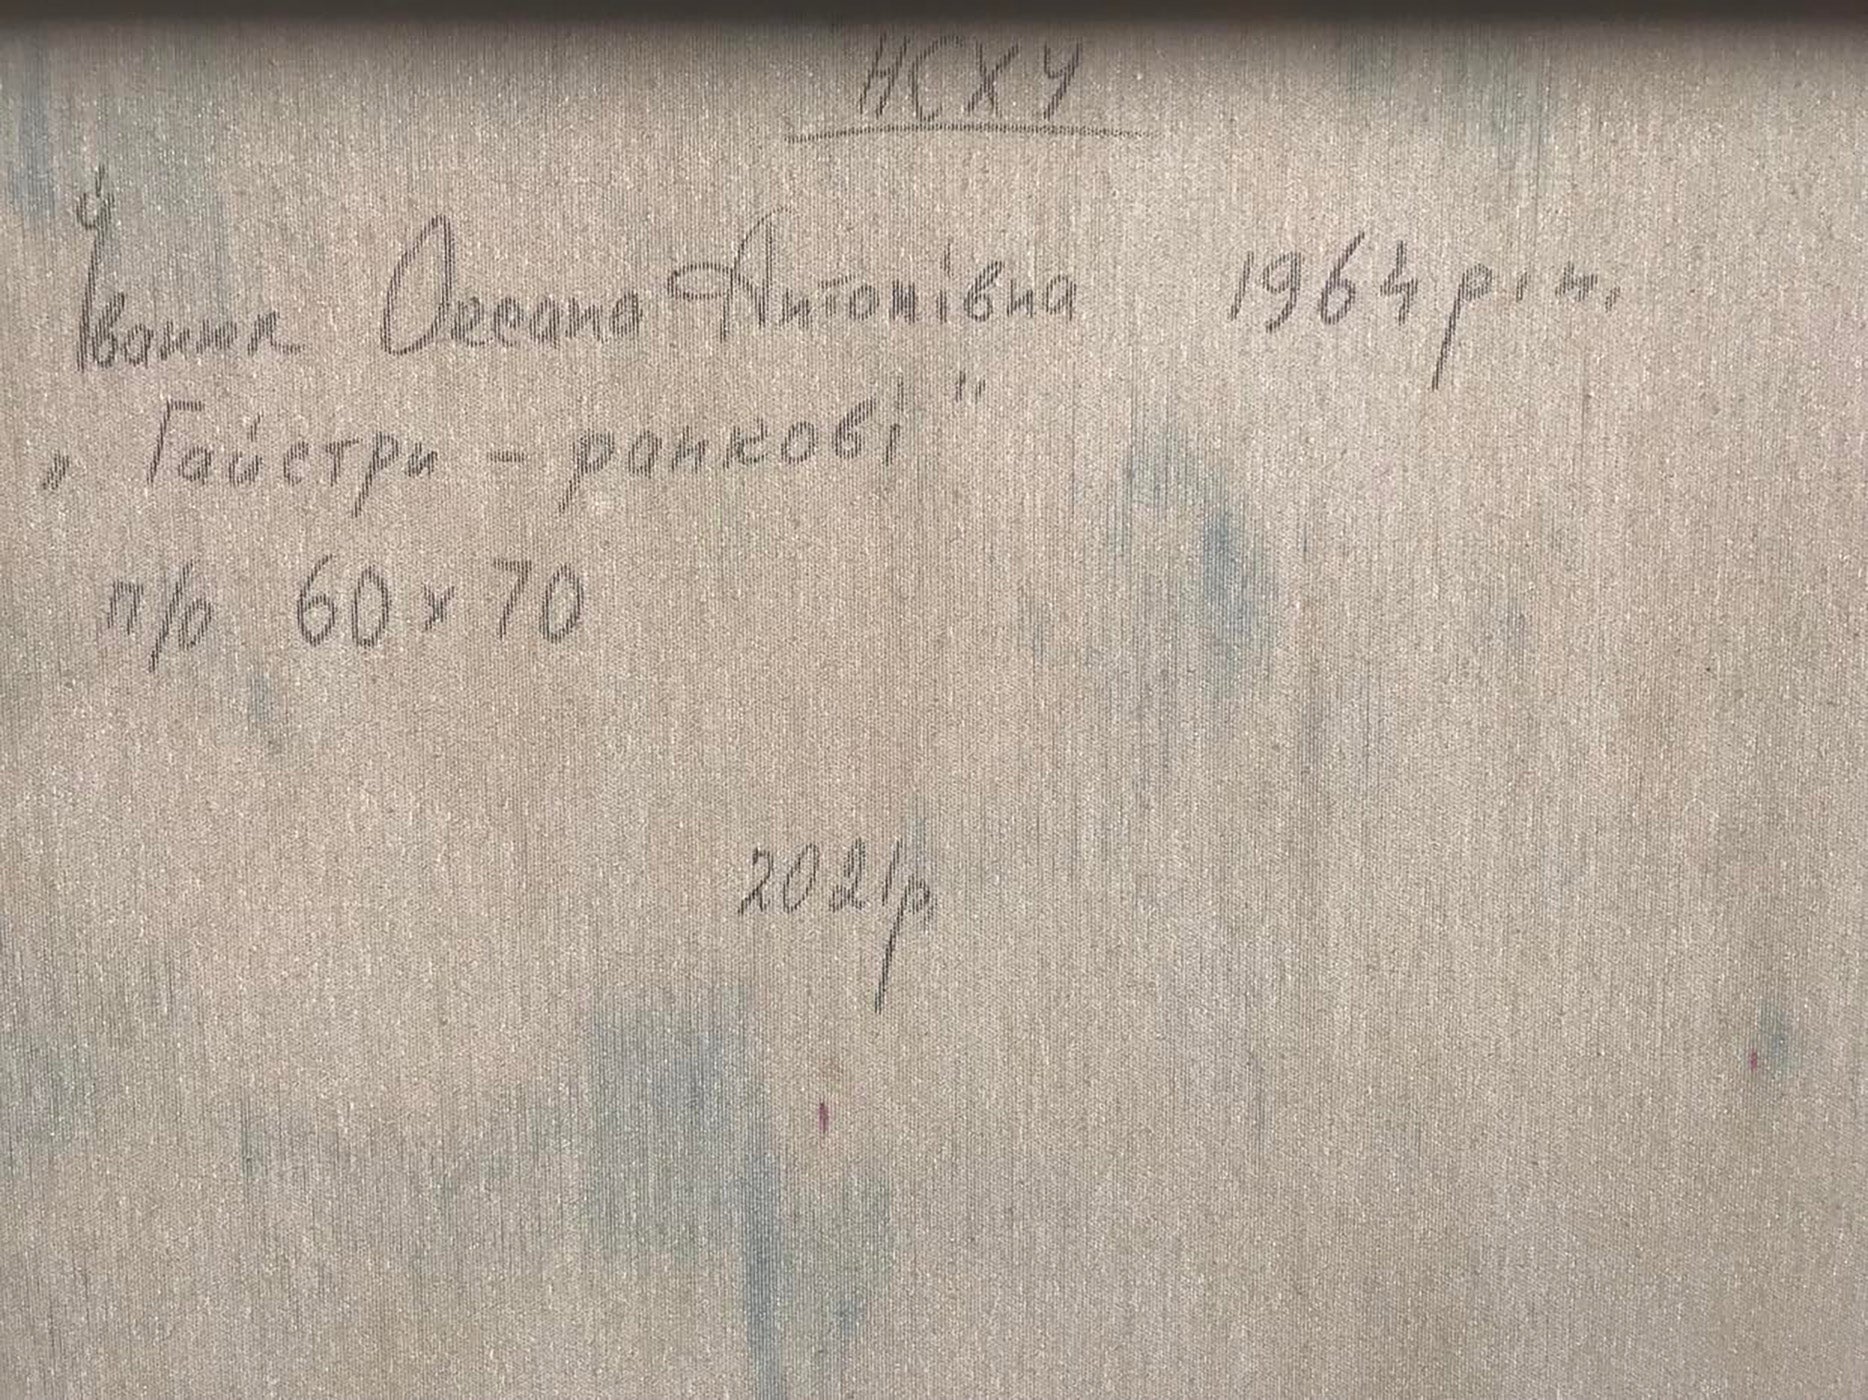 НСХУ
Іванюк Оксана Антонівна 1964 р.н.
„Гайстри - ранкові"
п/о 60 х 70
2021р